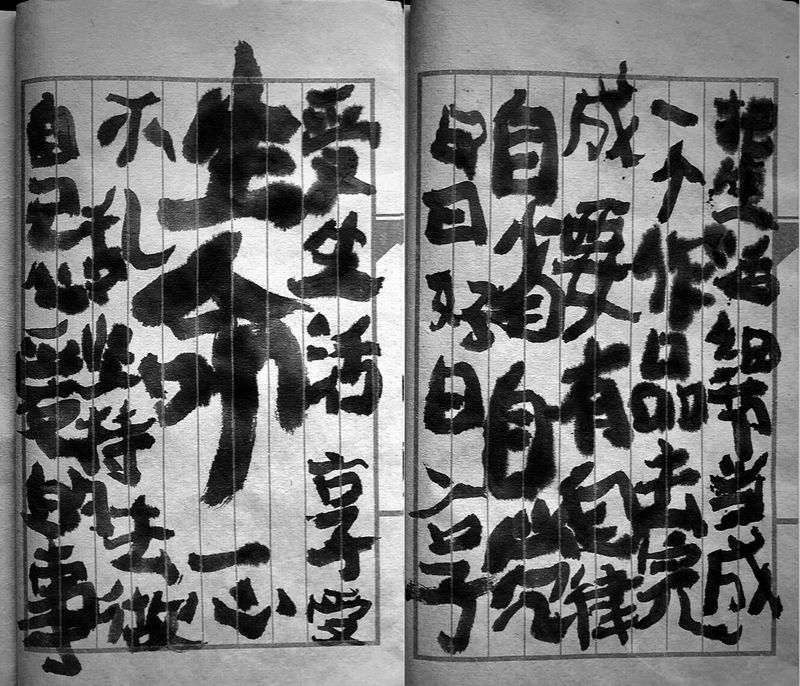 把生活细节当成
一个作品去完
成要有自律
自省自觉
日日好日享
受生活享受
生命一心
不乱坚持去做
自己的事